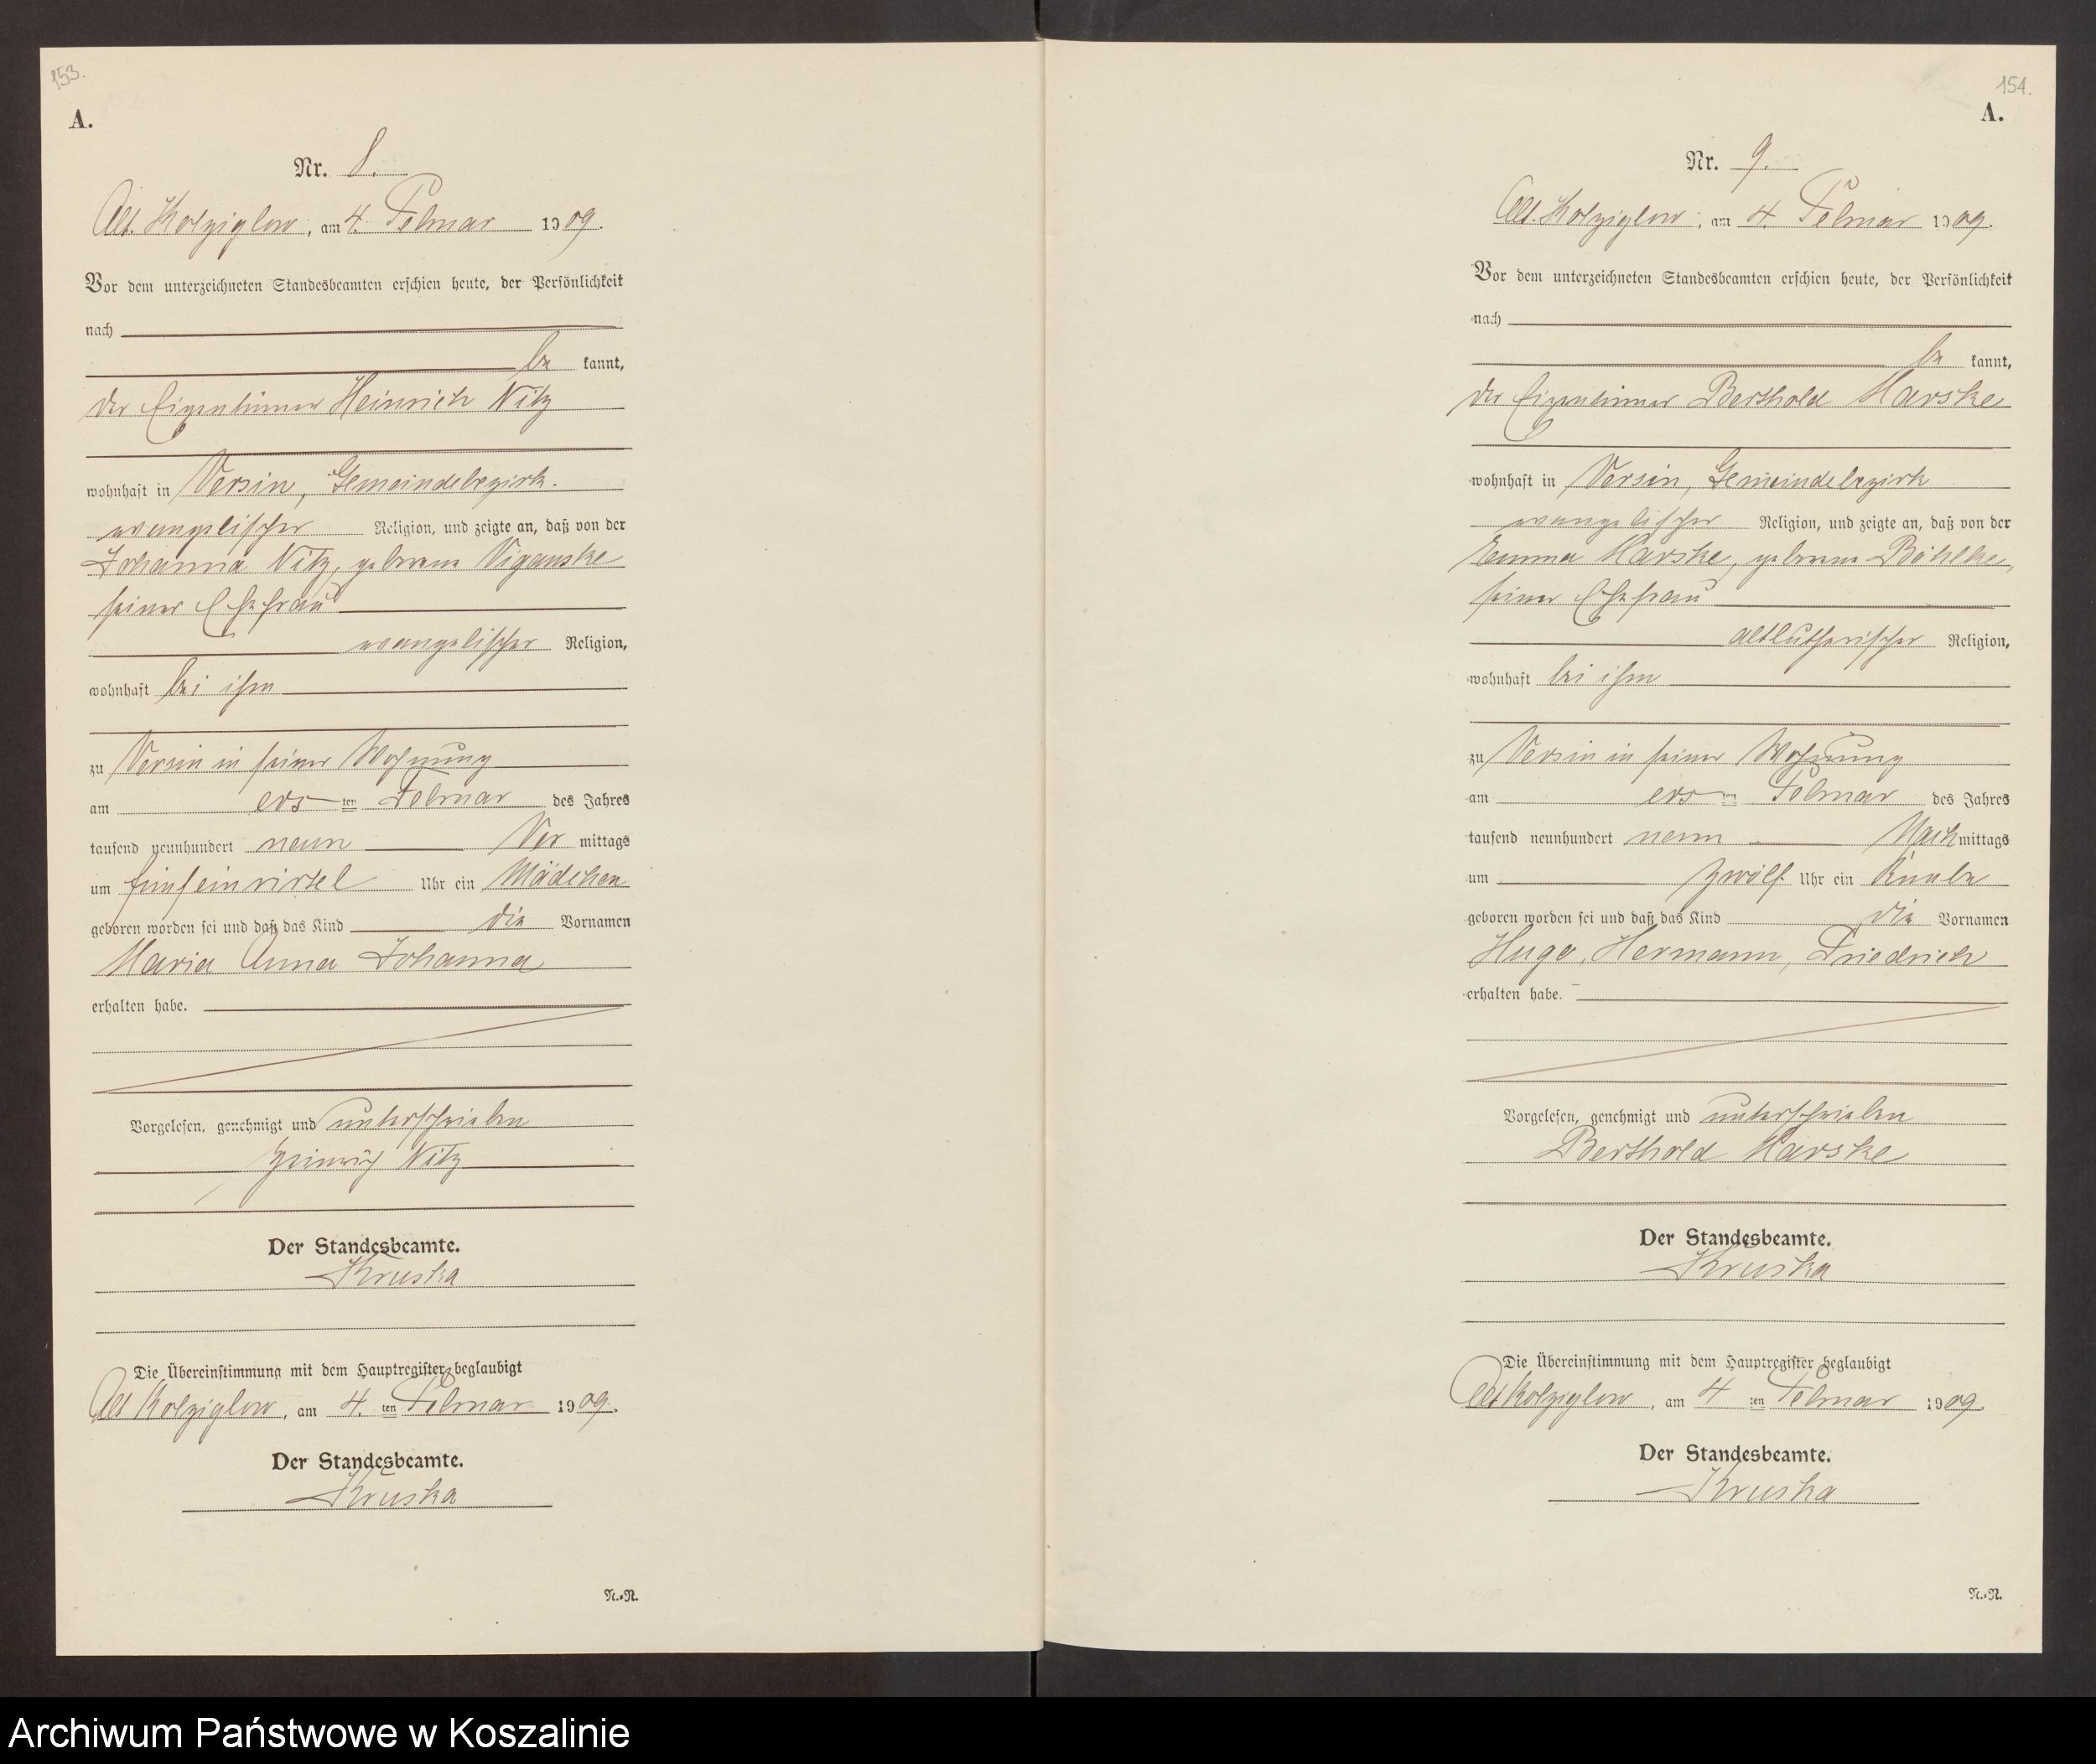 153.
A.
Nr. 8.
Alt. Kolziglow, am 4. Februar 1909.
Vor dem unterzeichneten Standesbeamten erschien heute, der Persönlichkeit
nach
be kannt,
der Eigentümer Heinrich Nitz
wohnhaft in Versin, Gemeindebezirk.
evangelischer Religion, und zeigte an, daß von der
Johanna Nitz, geborene Viganske
seiner Ehefrau
evangelischer Religion,
wohnhaft bei ihm
zu Versin in seiner Wohnung
am ers ten Februar des Jahres
tausend neunhundert neun Vor mittags
um fünfeinviertel Uhr ein Mädchen
geboren worden sei und daß das Kind die Vornamen
Maria Anna Johanna
erhalten habe.
Vorgelesen, genehmigt und unterschrieben
Heinrich Nitz
Der Standesbeamte.
Kruska
Die Übereinstimmung mit dem Hauptregister beglaubigt
Alt Kolziglow, am 4. ten Februar 1909.
Der Standesbeamte.
Kruska
N.-N.
154.
A.
Nr. 9.
Alt. Kolziglow, am 4. Februar 1909.
Vor dem unterzeichneten Standesbeamten erschien heute, der Persönlichkeit
nach
be kannt,
der Eigentümer Berthold Harske
wohnhaft in Versin, Gemeindebezirk
evangelischer Religion, und zeigte an, daß von der
Emma Harske, geborene Böhlke,
seiner Ehefrau
altlutherischer Religion,
wohnhaft bei ihm
zu Versin in seiner Wohnung
am ers ten Februar des Jahres
tausend neunhundert neun Nach mittags
um zwölf Uhr ein Knabe
geboren worden sei und daß das Kind die Vornamen
Hugo, Hermann, Friedrich
erhalten habe.
Vorgelesen, genehmigt und unterschrieben
Berthold Harske
Der Standesbeamte.
Kruska
Die Übereinstimmung mit dem Hauptregister beglaubigt
Alt Kolziglow, am 4 ten Februar 1909.
Der Standesbeamte.
Kruska
N.-N.
Archiwum Państwowe w Koszalinie